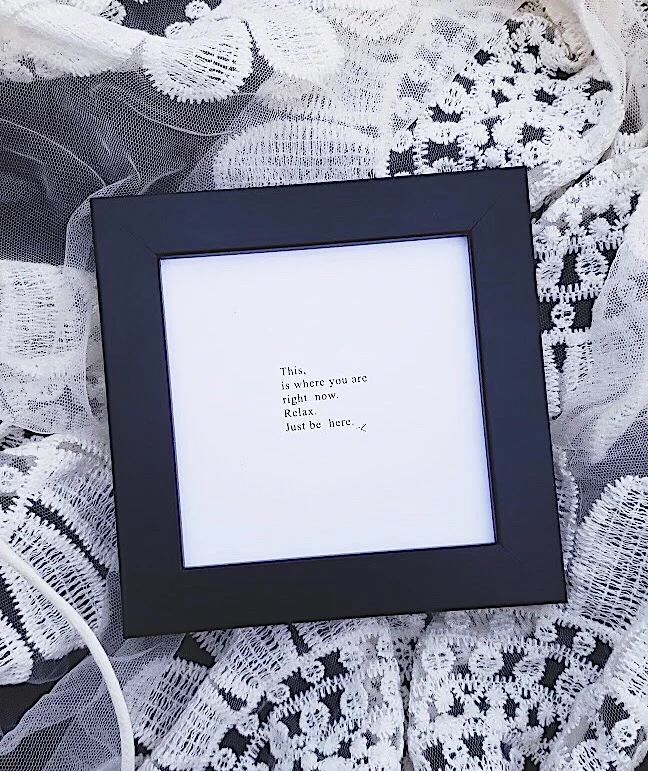 This,
is where you are
right now.
Relax.
Just be here.